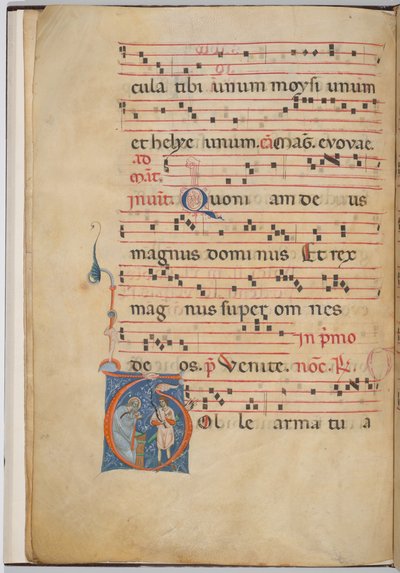 cula tibi unum moysi unum
et helye unum. cā Mag̃. evovae.
ad
mat̃.
invit̃. Quoni am de us
magnus dominus Et rex
mag nus super om nes
in p̃mo
de os. p̃ Venite. noc̃e. R
Tol le arma tu a